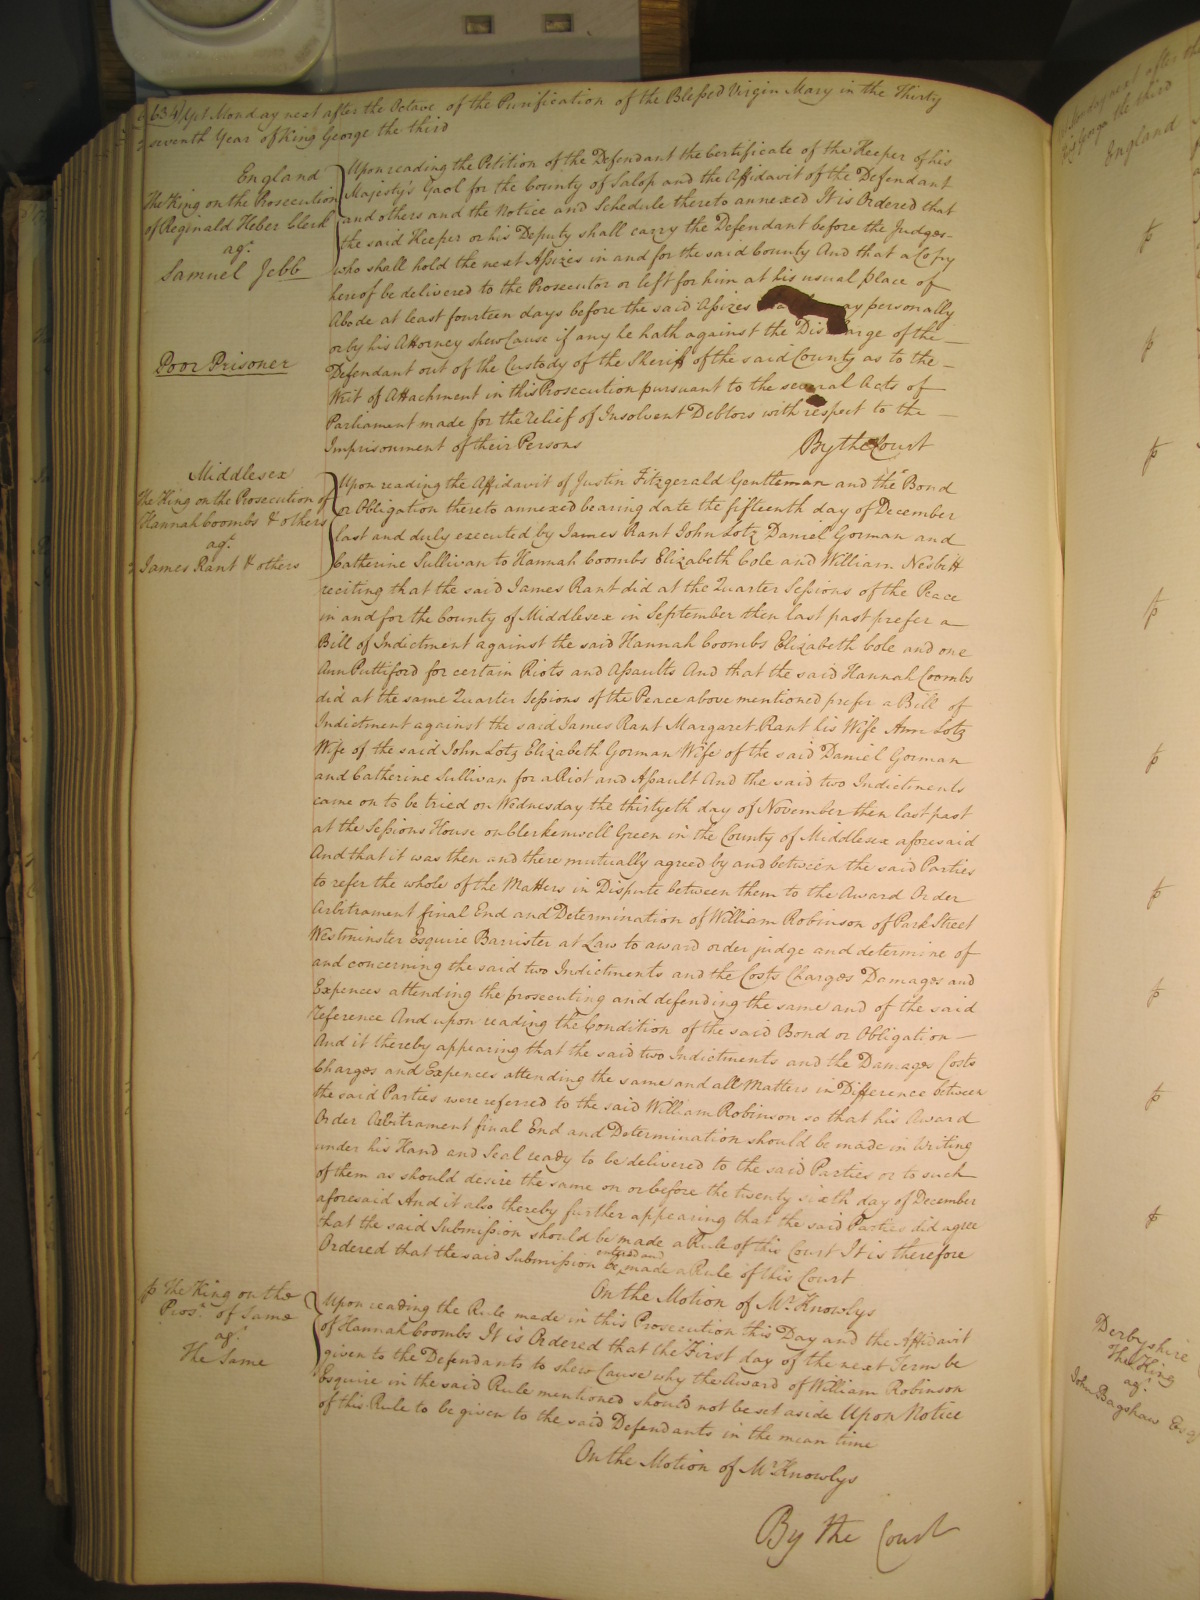 634 Yet Monday next after the Octave of the Purification of the Blessed Virgin Mary in the Thirty
seventh Year of King George the third
England
The King on the Prosecution
of Reginald Heber Clerk
agt.
Samuel Jebb
Poor Prisoner
Upon reading the Petition of the Defendant the Certificate of the Keeper of his
Majesty's Gaol for the County of Salop and the Affidavit of the Defendant
and others and the Notice and Schedule thereto annexed It is Ordered that
the said Keeper or his Deputy shall carry the Defendant before the Judges
who shall hold the next Assizes in and for the said County And that a Copy
hereof be delivered to the Prosecutor or left for him at his usual place of
Abode at least fourteen days before the said Assizes ay personally
or by his Attorney shew Cause if any he hath against the Discharge of the
Defendant out of the Custody of the Sheriff of the said County as to the
Writ of Attachment in this Prosecution pursuant to the several Acts of
Parliament made for the relief of Insolvent Debtors with respect to the
Imprisonment of their Persons
By the Court
Middlesex
The King on the Prosecution of
Hannah Coombs & others
agt.
James Rant & others
Upon reading the Affidavit of Justin Fitzgerald Gentleman and the Bond
or Obligation thereto annexed bearing date the fifteenth day of December
last and duly executed by James Rant John Lotz Daniel Gorman and
Catherine Sullivan to Hannah Coombs Elizabeth Cole and William Nesbitt
reciting that the said James Rant did at the Quarter Sessions of the Peace
in and for the County of Middlesex in September then last past prefer a
Bill of Indictment against the said Hannah Coombs Elizabeth Cole and one
Ann Puttiford for certain Riots and Assaults And that the said Hannah Coombs
did at the same Quarter Sessions of the Peace above mentioned prefer a Bill of
Indictment against the said James Rant Margaret Rant his Wife Ann Lotz
Wife of the said John Lotz Elizabeth Gorman Wife of the said Daniel Gorman
and Catherine Sullivan for a Riot and Assault And the said two Indictments
came on to be tried on Wednesday the thirtyeth day of November then last past
at the Sessions House on Clerkenwell Green in the County of Middlesex aforesaid
And that it was then and there mutually agreed by and between the said Parties
to refer the whole of the Matters in Dispute between them to the Award Order
Arbitrament final End and Determination of William Robinson of Park Street
Westminster Esquire Barrister at Law to award order judge and determine of
and concerning the said two Indictments and the Costs Charges Damages and
Expences attending the prosecuting and defending the same and of the said
Reference And upon reading the Condition of the said Bond or Obligation
And it thereby appearing that the said two Indictments and the Damages Costs
Charges and Expences attending the same and all Matters in Difference between
the said Parties were referred to the said William Robinson so that his Award
Order Arbitrament final End and Determination should be made in Writing
under his Hand and Seal ready to be delivered to the said Parties or to such
of them as should desire the same on or before the twenty sixth day of December
aforesaid And it also thereby further appearing that the said Parties did agree
that the said Submission should be made a Rule of this Court It is therefore
Ordered that the said Submission be entered and made a Rule of this Court
On the Motion of Mr. Knowlys
p The King on the
Prosn. of Same
agt.
The Same
Upon reading the Rule made in this Prosecution this Day and the Affidavit
of Hannah Coombs It is Ordered that the First day of the next Term be
given to the Defendants to shew Cause why the Award of William Robinson
Esquire in the said Rule mentioned should not be set aside Upon Notice
of this Rule to be given to the said Defendants in the mean time
On the Motion of Mr. Knowlys
By the Court
next after the
King George the third
England
p
p
p
p
p
p
p
p
p
Derbyshire
The King
agt.
John Bagshaw Esq